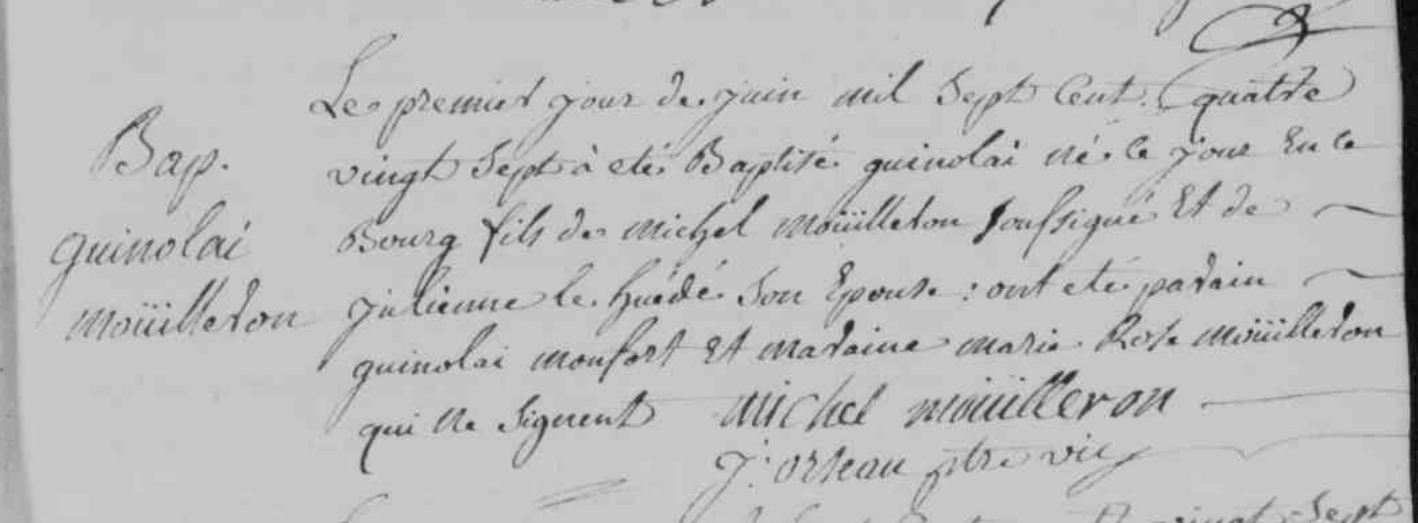 Bap.
guinolai
moüilleron
Le premier jour de juin mil Sept Cent quatre
vingt Sept à eté Baptisé guinolai né ce jour En ce
Bourg fils de michel moüilleron soussigné Et de
julienne le huédé Son Epouse : ont eté parain
guinolai monfort Et maraine marie Rose moüilleron
qui ne Signent michel moüilleron
J. orheau ptre vic
vingt Sept